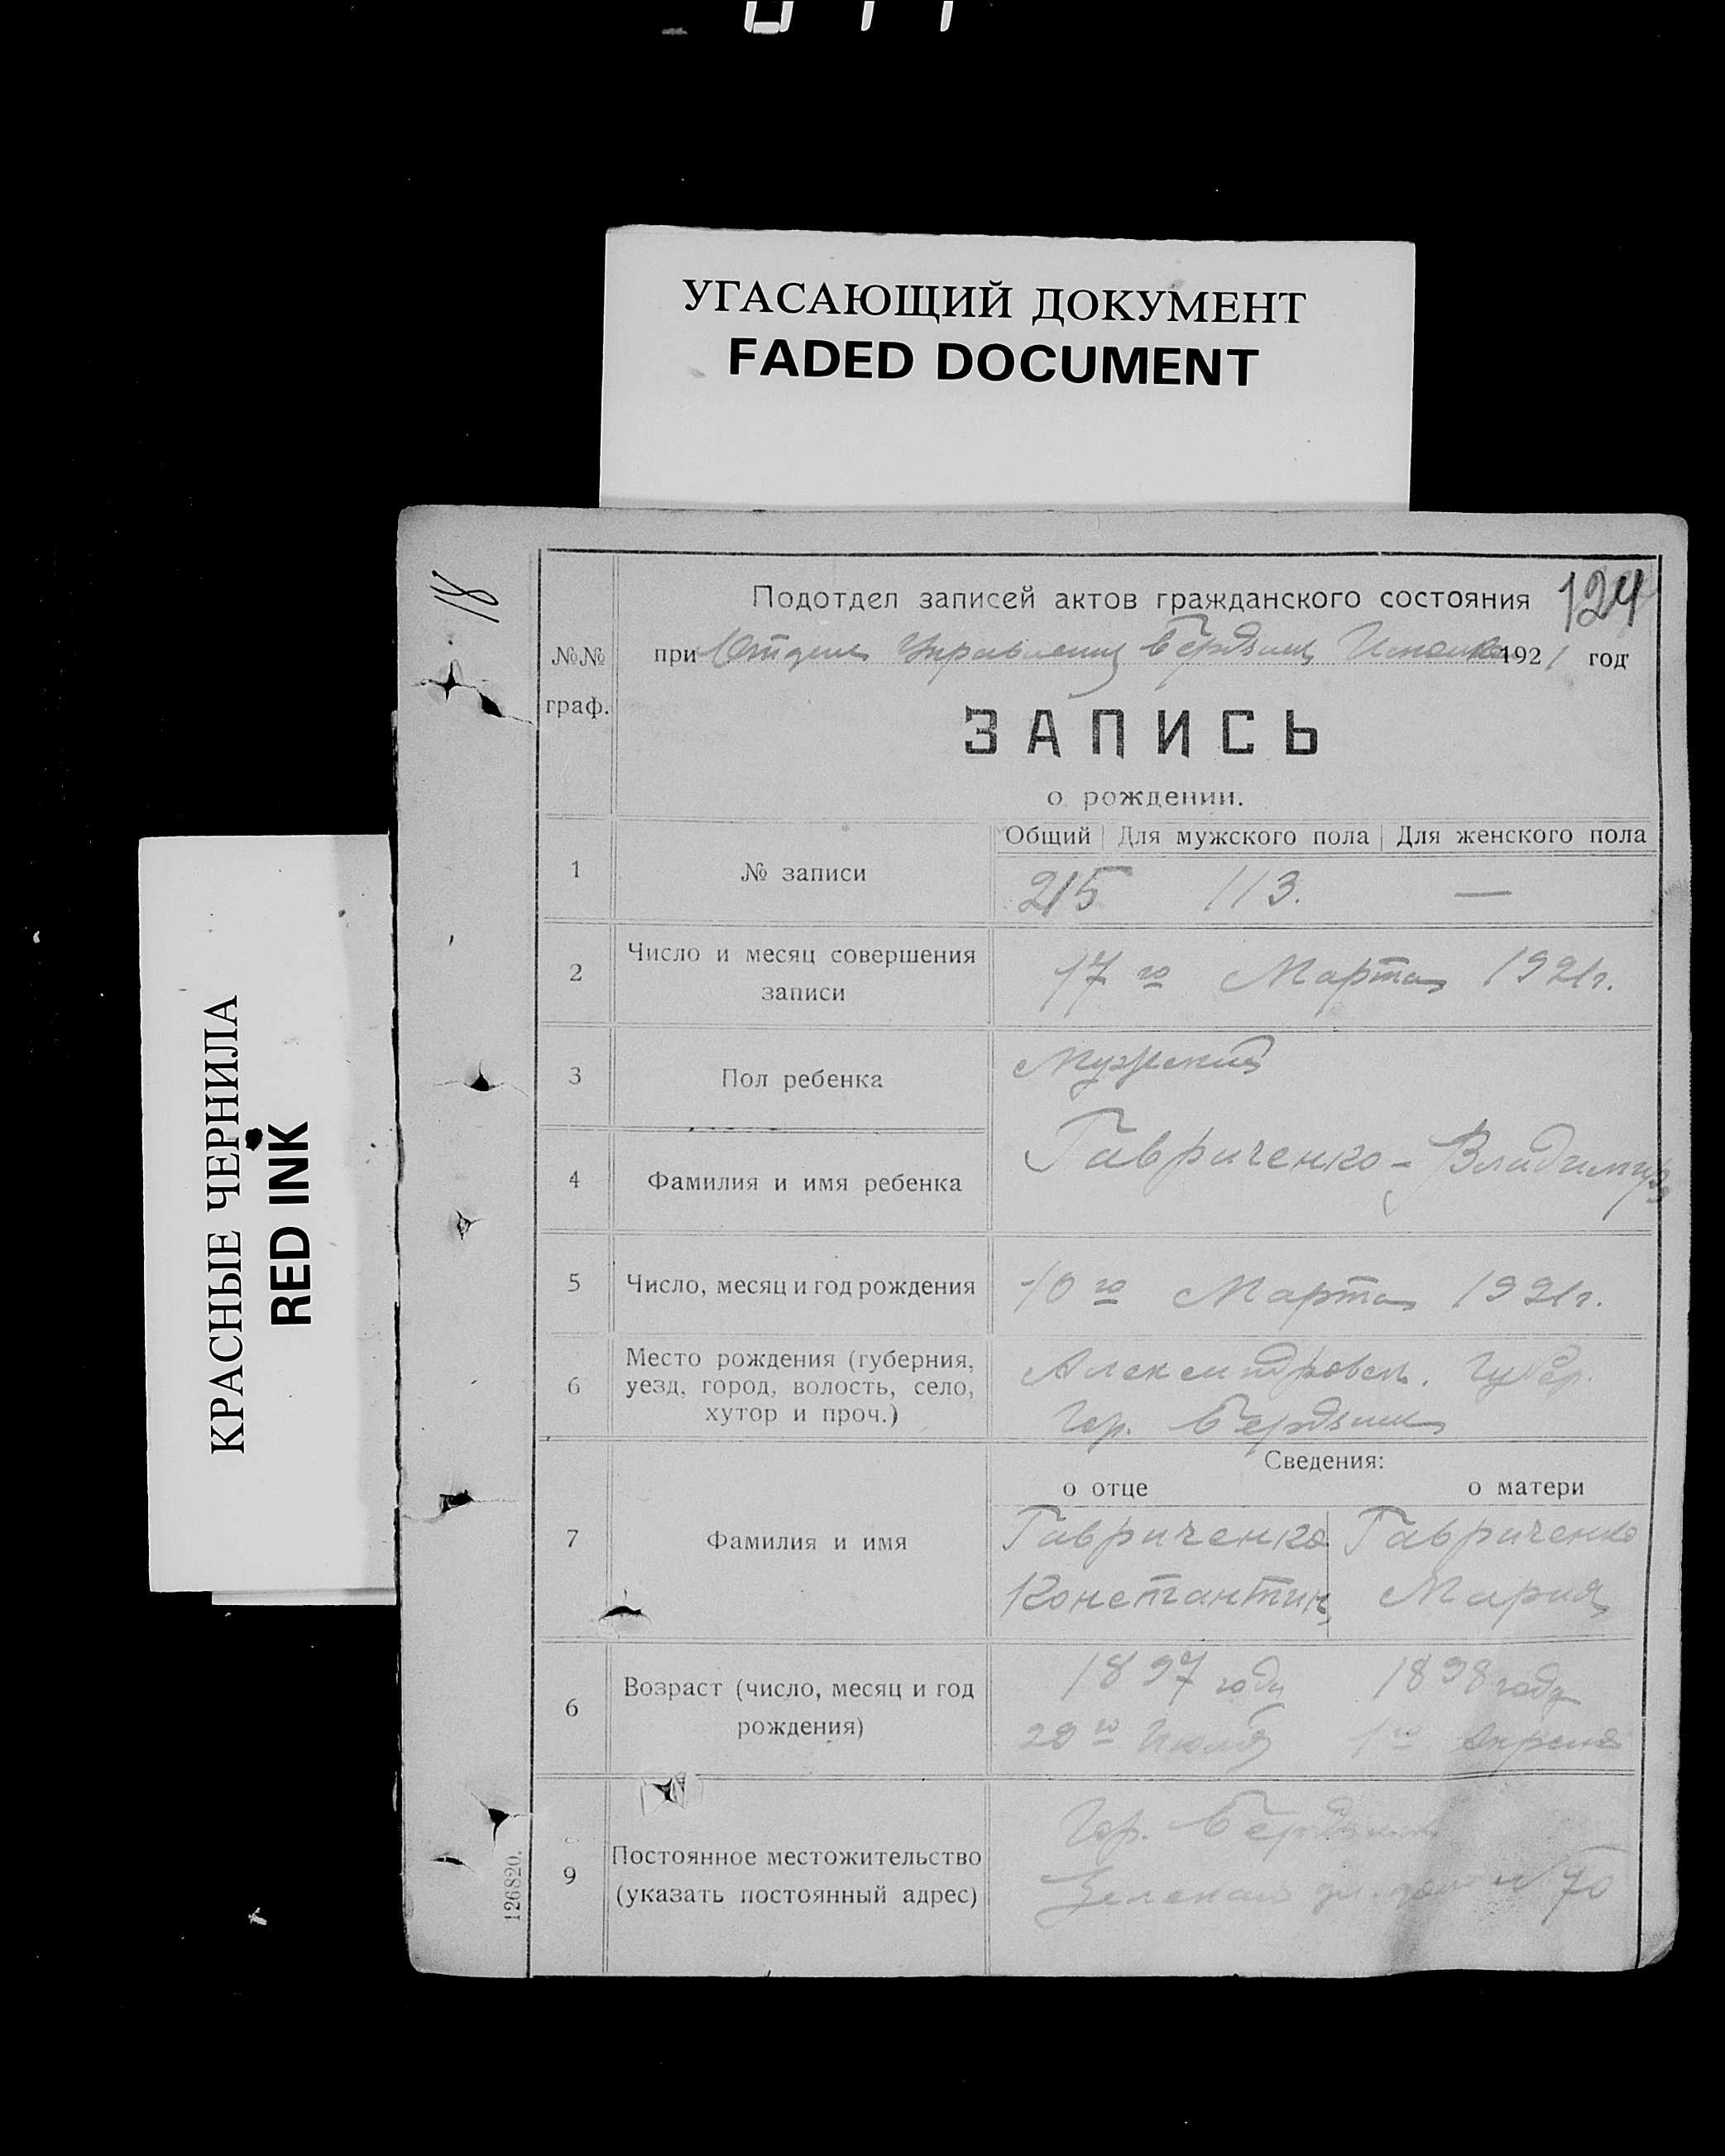 УГАСАЮЩИЙ ДОКУМЕНТ
FADED DOCUMENT
КРАСНЫЕ ЧЕРНИЛА
RED INK
18
124
Подотдел записей актов гражданского состояния
№№ граф.
при Отделе Управления Бердянск 1921 год
ЗАПИСЬ
о рождении.
Общий Для мужского пола Для женского пола
1 № записи 215 113. —
2 Число и месяц совершения записи 17го Марта 1921г.
3 Пол ребенка Мужской
4 Фамилия и имя ребенка Гавриченко - Владимир
5 Число, месяц и год рождения 10го Марта 1921г.
6 Место рождения (губерния, уезд, город, волость, село, хутор и проч.) Александровск. Губер.
Гор. Бердянск
Сведения:
о отце о матери
7 Фамилия и имя Гавриченко Гавриченко
Константин Мария
6 Возраст (число, месяц и год рождения) 1897 году 1898 году
1го Апреля
9 Постоянное местожительство (указать постоянный адрес) Гор. Бердянск
ул. дом № 70
126820.